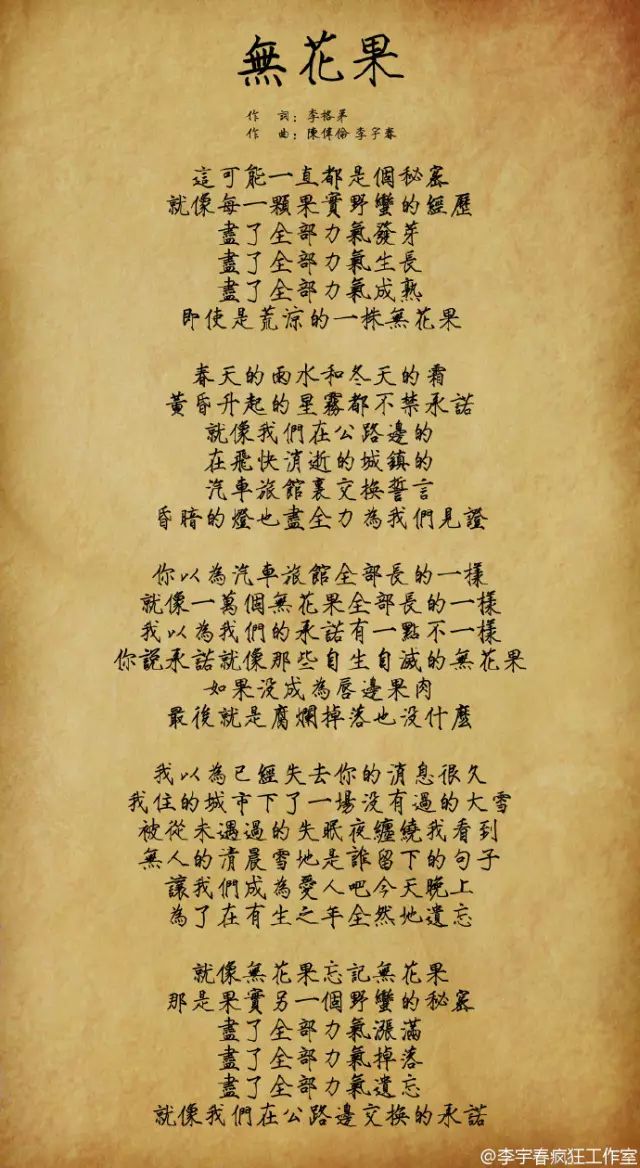 無花果
作 詞：李格弟
作 曲：陳偉倫 李宇春
這可能一直都是個秘密
就像每一顆果實野蠻的經歷
盡了全部力氣發芽
盡了全部力氣生長
盡了全部力氣成熟
即使是荒涼的一株無花果
春天的雨水和冬天的霜
黃昏升起的星霧都不禁承諾
就像我們在公路邊的
在飛快消逝的城鎮的
汽車旅館裏交換誓言
昏暗的燈也盡全力為我們見證
你以為汽車旅館全部長的一樣
就像一萬個無花果全部長的一樣
我以為我們的承諾有一點不一樣
你說承諾就像那些自生自滅的無花果
如果没成為唇邊果肉
最後就是腐爛掉落也没什麼
我以為已經失去你的消息很久
我住的城市下了一場没有過的大雪
被從未遇過的失眠夜纏繞我看到
無人的清晨雪地是誰留下的句子
讓我們成為愛人吧今天晚上
為了在有生之年全然地遺忘
就像無花果忘記無花果
那是果實另一個野蠻的秘密
盡了全部力氣漲滿
盡了全部力氣掉落
盡了全部力氣遺忘
就像我們在公路邊交換的承諾
@李宇春疯狂工作室